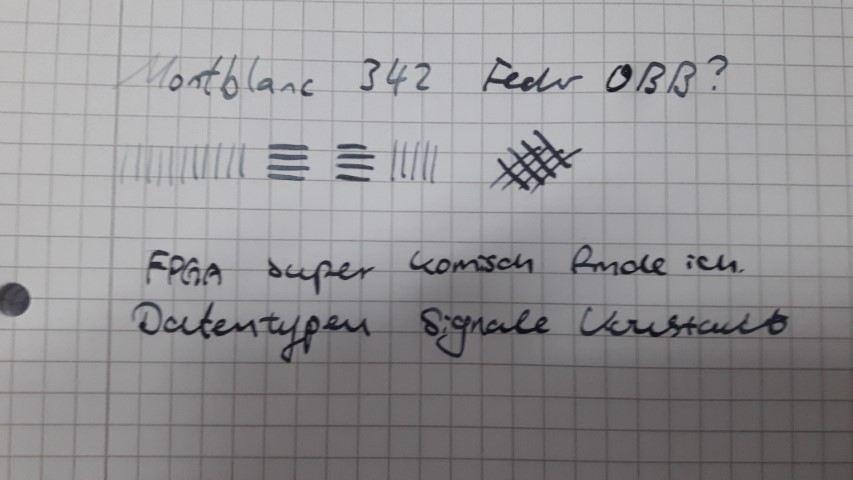 Montblanc 342 Feder OBB?
FPGA super komisch finde ich.
Datentypen Signale